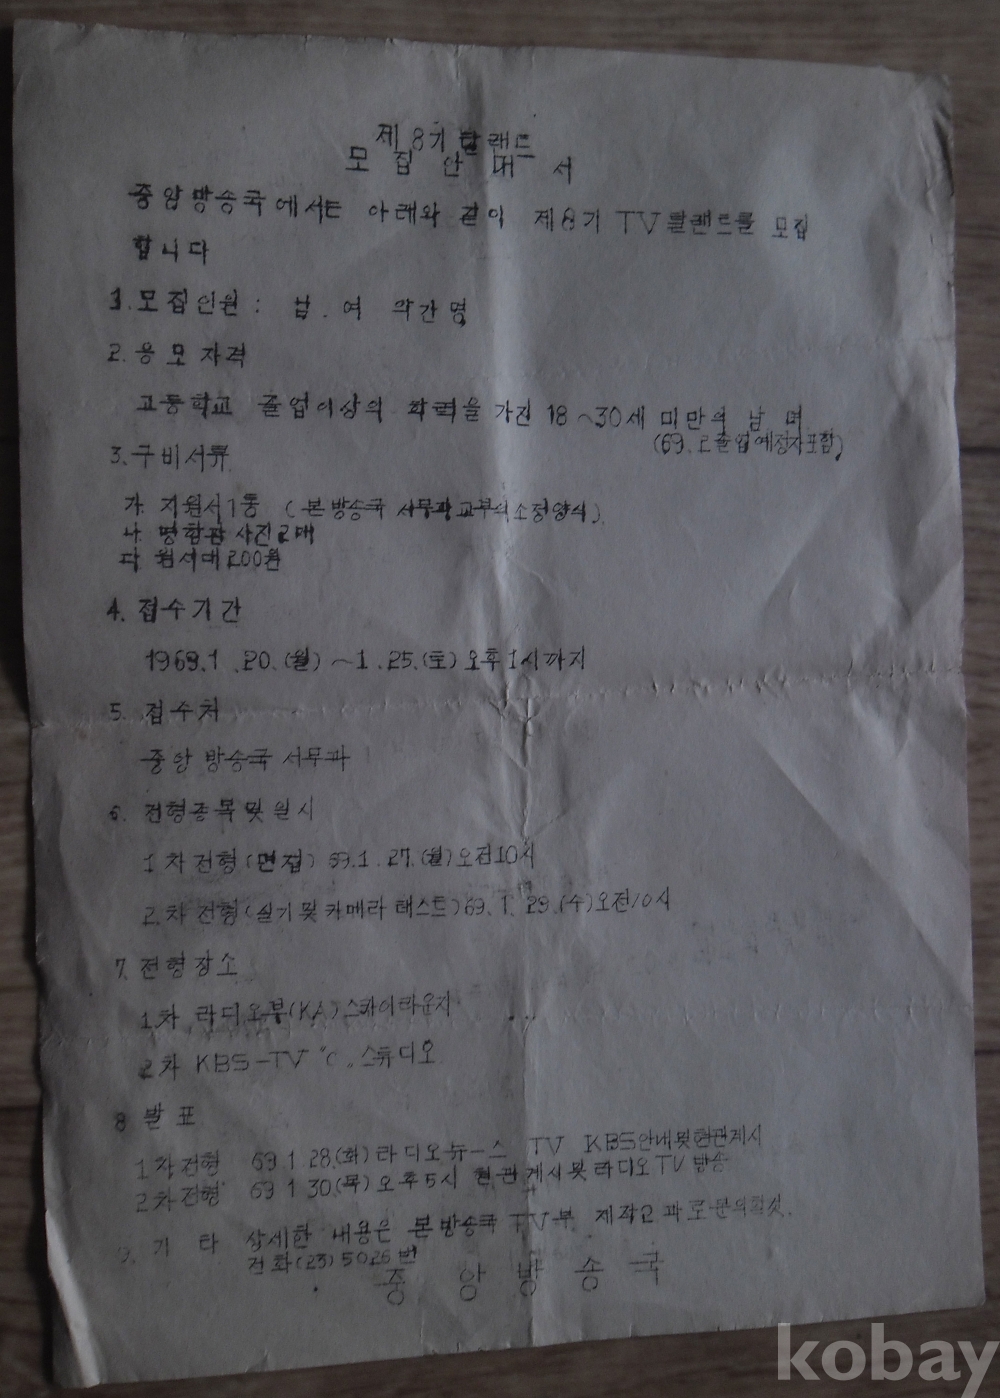 제8기 탈랜트
모 집 안 내 서
중앙방송국에서는 아래와 같이 제8기 TV탈랜트를 모집
합니다
1. 모집인원 : 남. 여 약간명
2. 응모자격
고등학교 졸업이상의 학력을 가진 18~30세 미만의 남 녀
(69. 2졸업예정자포함)
3. 구비서류
가. 지원서1통 (본방송국 서무과교부의소정양식)
나. 명함판사진2매
다. 원서대200원
4. 접수기간
1969.1.20.(월)~1.25.(토)오후1시까지
5. 접수처
중앙방송국서무과
6. 전형종목및일시
1차전형(면접) 69.1.27.(월)오전10시
2.차전형(실기및카메라테스트)69.1.29.(수)오전10시
7. 전형장소
1차 라디오부(KA)스카이라운지
2차 KBS-TV "C"스튜디오
8 발표
1차전형 69 1 28.(화)라디오뉴-스 TV KBS안내및현관게시
2차전형 69 1 30(목)오후5시 현관게시및라디오TV방송
9. 기 타 상세한 내용은 본방송국 TV부 제작2과로문의할것.
전화(23)5026번
중 앙 방 송 국
kobay